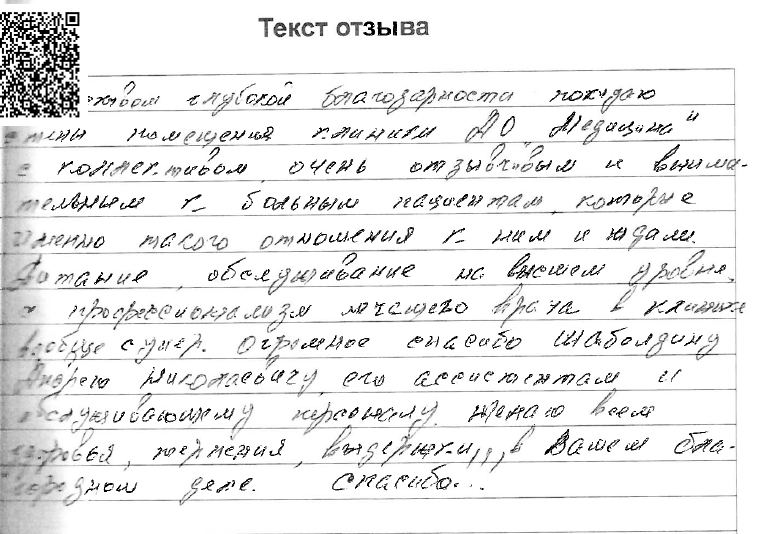 Текст отзыва
глубокой благодарности покидаю
стены помещения клиники АО "Медицина"
с коллективом очень отзывчивым и внима-
тельным к больным пациентам, которые
именно такого отношения к ним и ждали.
Питание, обслуживание на высшем уровне,
а профессионализм лечащего врача в клинике
вообще супер. Огромное спасибо Шаболдину
Андрею Николаевичу, его ассистентам и
обслуживающему персоналу. Желаю всем
здоровья, терпения, выдержки,,, в Вашем бла-
городном деле. Спасибо...